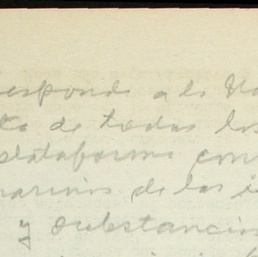 responde a la Na
to de todas los
plataforma con
marinos de las i
y substancias